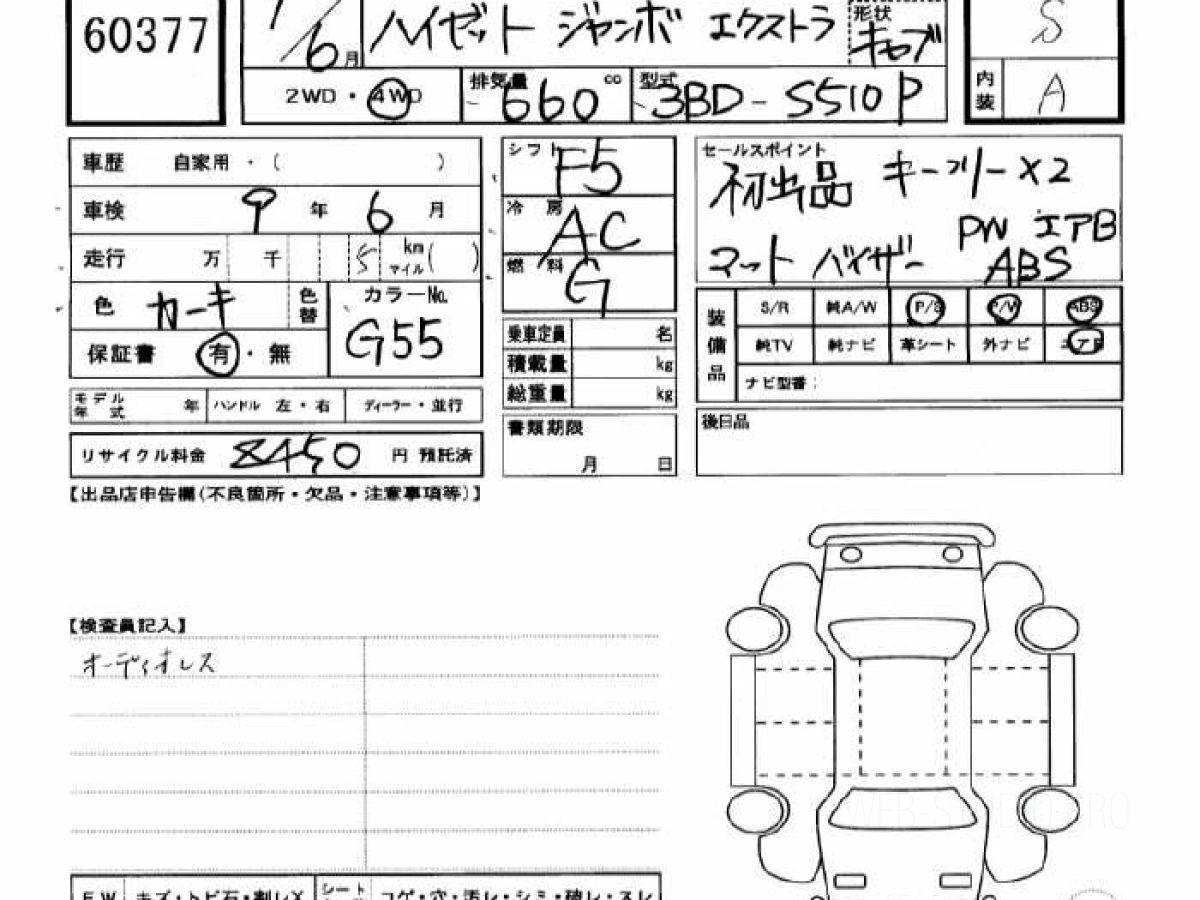 60377
6月
ハイゼット ジャンボ エクストラ
形状 キャブ
S
2WD・4WD
排気量 660 cc
型式 3BD-S510P
内装 A
車歴 自家用・( )
車検 9年 6月
走行 万 千 5 km マイル( )
色 カーキ 色替
カラーNo. G55
保証書 有・無
モデル年式 年 ハンドル 左・右 ディーラー・並行
リサイクル料金 8450 円 預託済
シフト F5
冷房 AC
燃料 G
乗車定員 名
積載量 kg
総重量 kg
書類期限
月 日
セールスポイント
初出品 キーフリー×2
PW エアB
マット バイザー ABS
装備品
S/R 純A/W P/S P/W ABS
純TV 純ナビ 革シート 外ナビ エアB
ナビ型番:
後日品
【出品店申告欄(不良箇所・欠品・注意事項等)】
【検査員記入】
オーディオレス
F.W キズ・トビ石・割レX シート コゲ・穴・汚レ・シミ・破レ・スレ